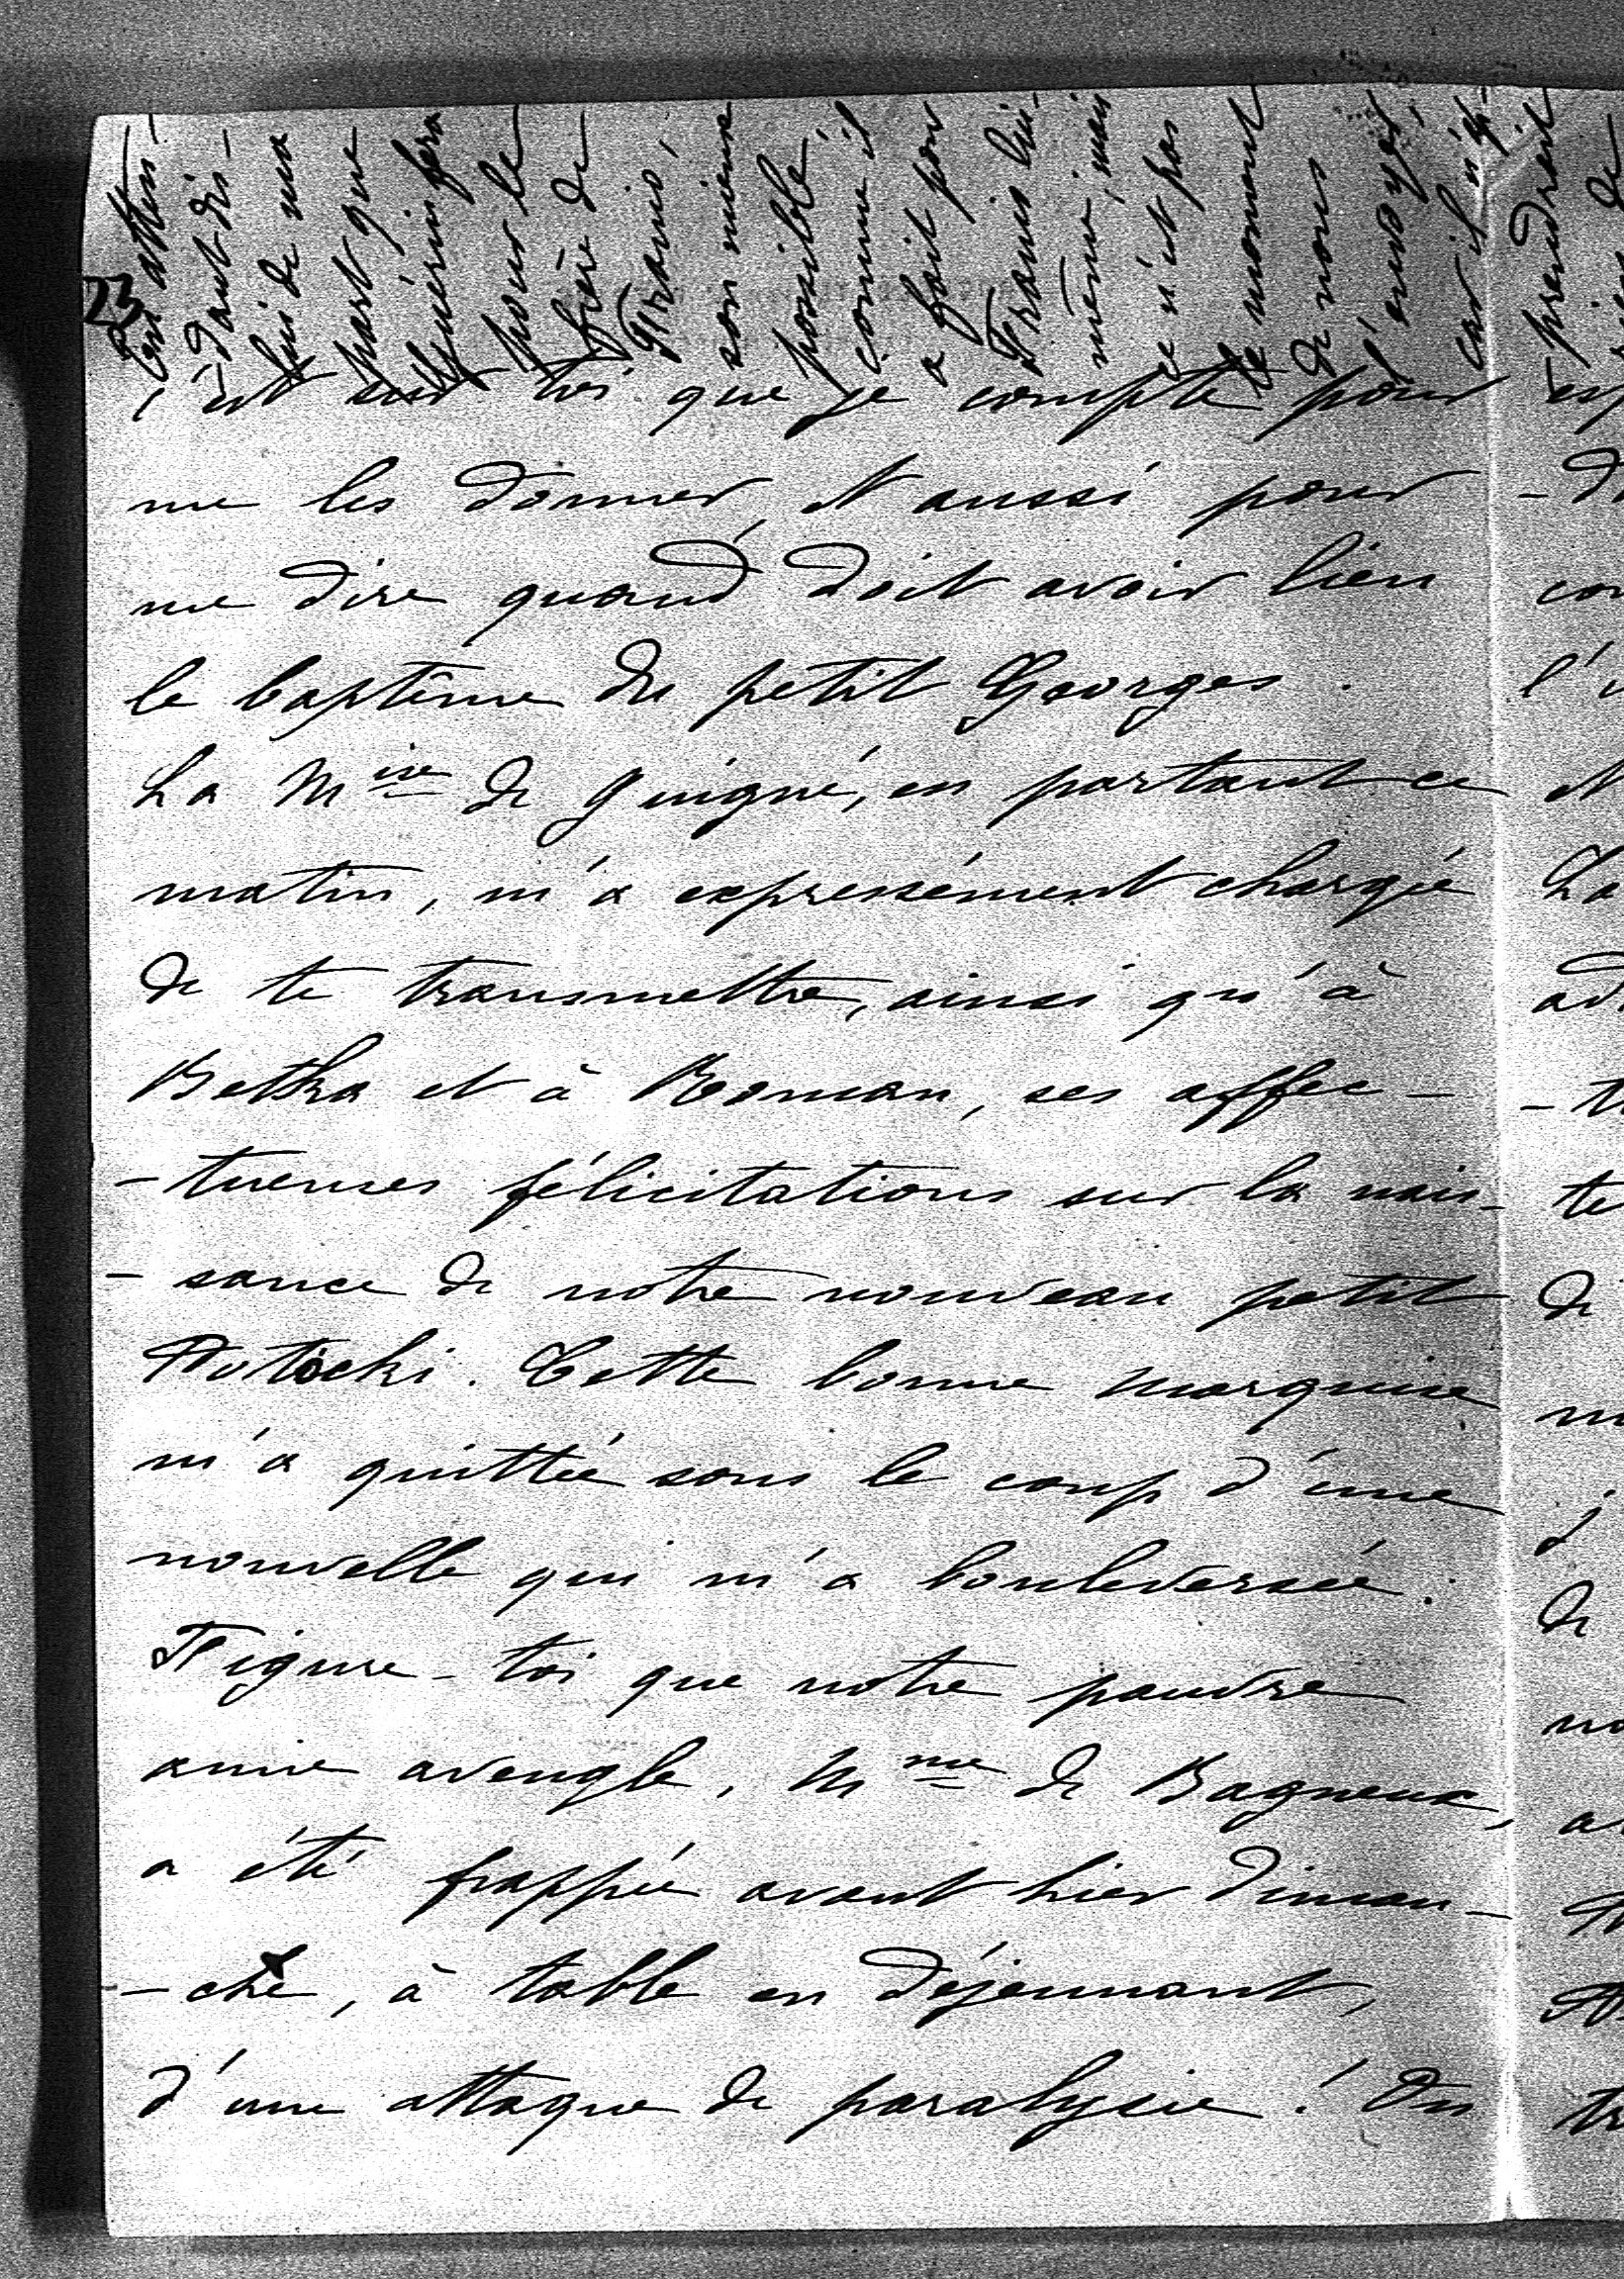 23
En atten-
-dant dis-
lui de ma
part que
Guérin fera
pour le
frère de
Francis,
son mieux
possible,
comme il
a fait pour
Francis lui-
même, mais
ce n'est pas
le moment
de nous
l'envoyer,
car il n'y
prendrait
c'est sur toi que je compte pour
me les donner, et aussi pour
me dire quand doit avoir lieu
le baptême du petit Georges.
La Mise de Guigné, en partant ce
matin, m'a expressément chargée
de te transmettre, ainsi qu'à
Betka et à Roman, ses affec-
-tueuses félicitations sur la nais-
-sance de notre nouveau petit
Potocki. Cette bonne marquise
m'a quittée sous le coup d'une
nouvelle qui m'a bouleversée.
Figure-toi que notre pauvre
amie aveugle, Mme de Bagneux,
a été frappée avant hier diman-
-che, à table en déjeunant,
d'une attaque de paralysie! On